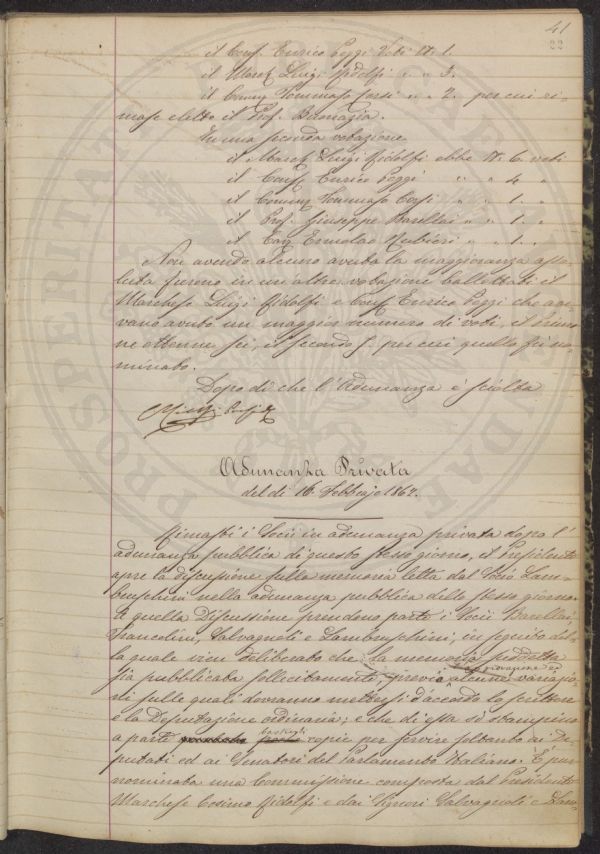 41
22
il Conf. Enrico Poggi Voti N. 1.
il March. Luigi Ridolfi " " 3.
il Comm. Tommaso Corsi " " 2. per cui ri-
mase eletto il Prof. Buonazia.
In una seconda votazione
il March. Luigi Ridolfi ebbe N. 6 voti
il Conf. Enrico Poggi " " 4 "
il Comm. Tommaso Corsi " " 1. "
il Prof. Giuseppe Barellai " " 1. "
il Cav. Ermolao Rubieri " " 1. "
Non avendo alcuno avuta la maggioranza asso-
luta furono in un'altra votazione ballottati il
Marchese Luigi Ridolfi e Conf. Enrico Poggi che ave-
vano avuto un maggior numero di voti, il primo
ne ottenne sei, il secondo 5. per cui quello fu no-
minato.
Dopo di che l'Adunanza è sciolta
Adunanza Privata
del dì 16. Febbrajo 1862.
Rimasti i Socii in adunanza privata dopo l'
adunanza pubblica di questo stesso giorno, il Presidente
apre la discussione sulla memoria letta dal Socio Lam-
bruschini nella adunanza pubblica dello stesso giorno.
A quella Discussione prendono parte i Socii Barellai,
Francolini, Salvagnoli e Lambruschini; in seguito del-
la quale vien deliberato che la memoria suddetta
sia pubblicata sollecitamente, previa alcune variazio-
ni sulle quali dovranno mettersi d'accordo lo scrittore
e la Deputazione ordinaria; e che di essa si stampino
a parte copie per servire soltanto ai De-
putati ed ai Senatori del Parlamento Italiano. È pur
nominata una Commissione composta dal Presidente
Marchese Cosimo Ridolfi e dai Signori Salvagnoli e Lam-